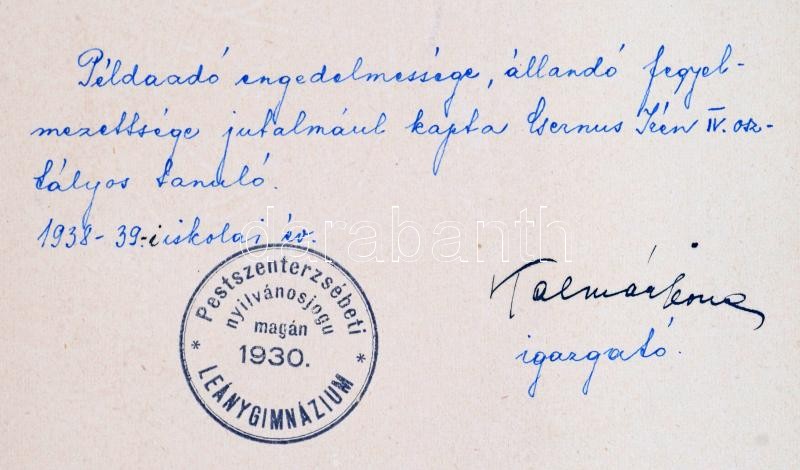 Példaadó engedelmessége, állandó fegyel-
mezettsége jutalmául kapta Csernus Irén IV. osz-
tályos tanuló.
1938-39-i iskolai év.
darabanth
Pestszenterzsébeti
nyilvánosjogu
magán
1930.
* LEÁNYGIMNÁZIUM *
Kalmár Ilona
igazgató.